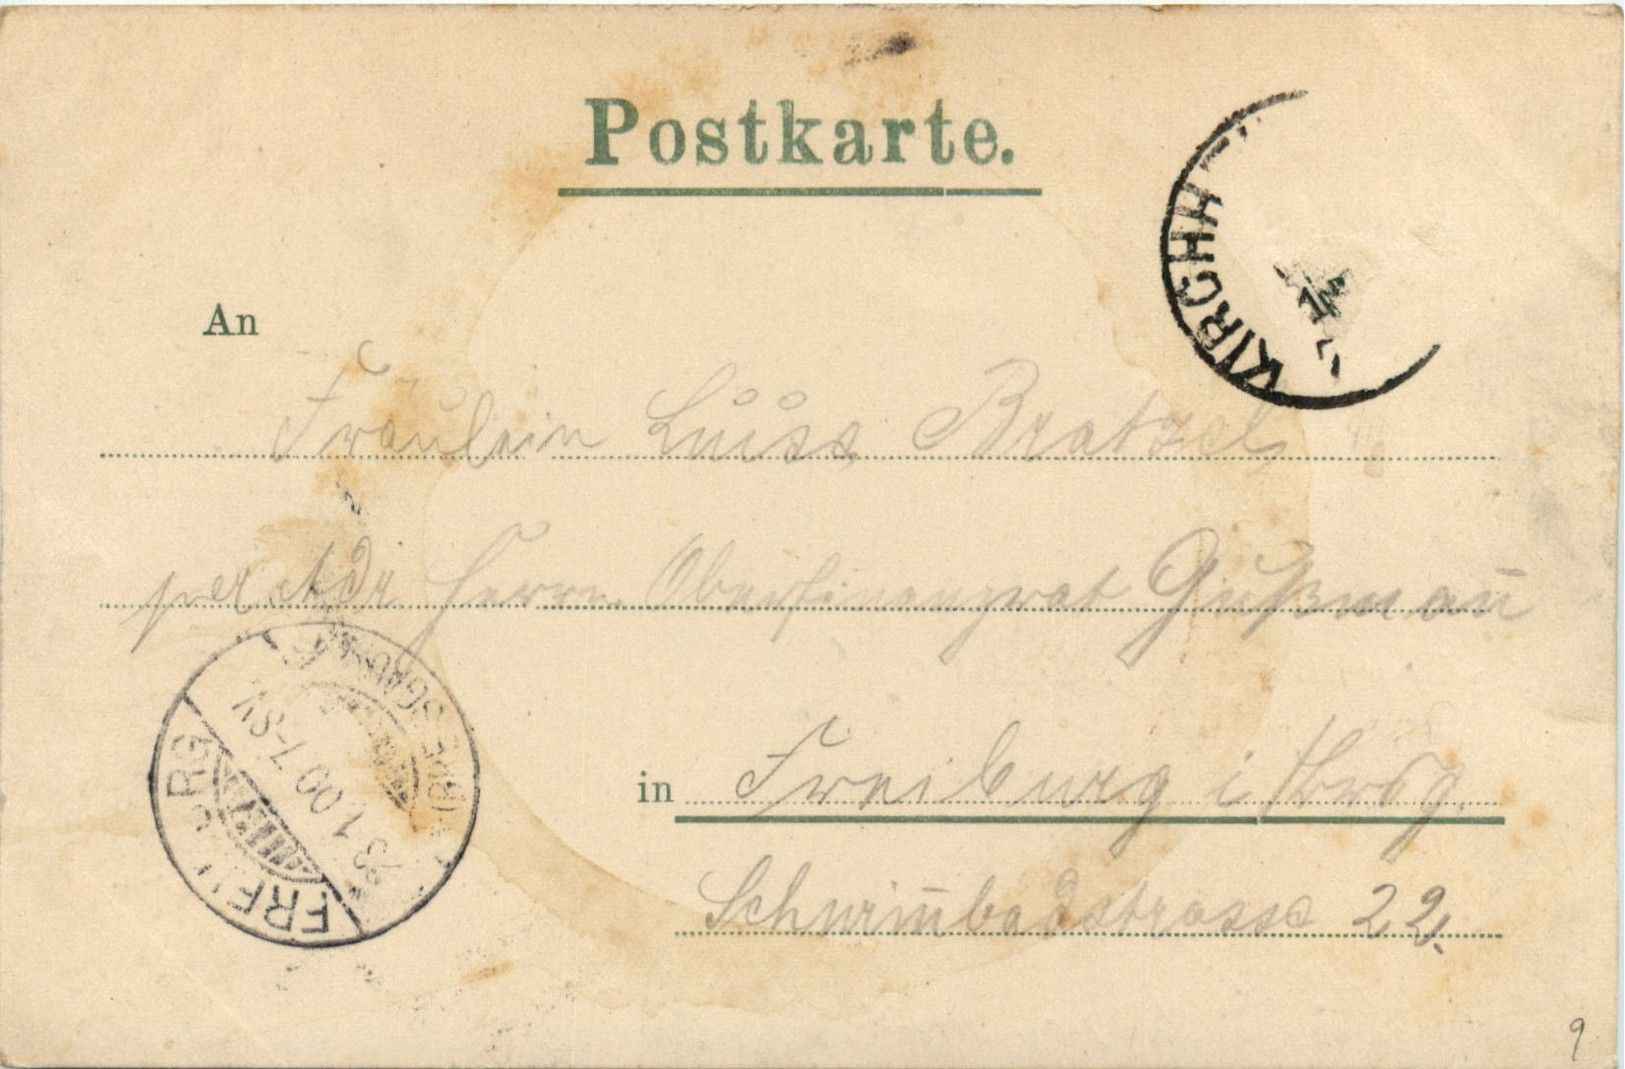 Postkarte.
KIRCHH
An
Fräulein Luise Bratzel
per Adr. Herrn Oberfinanzrat Gußmañ
in Freiburg i/Brsg.
Schwim̄badstrasse 22.
FREIBURG
23.1.00 7-8V.
9